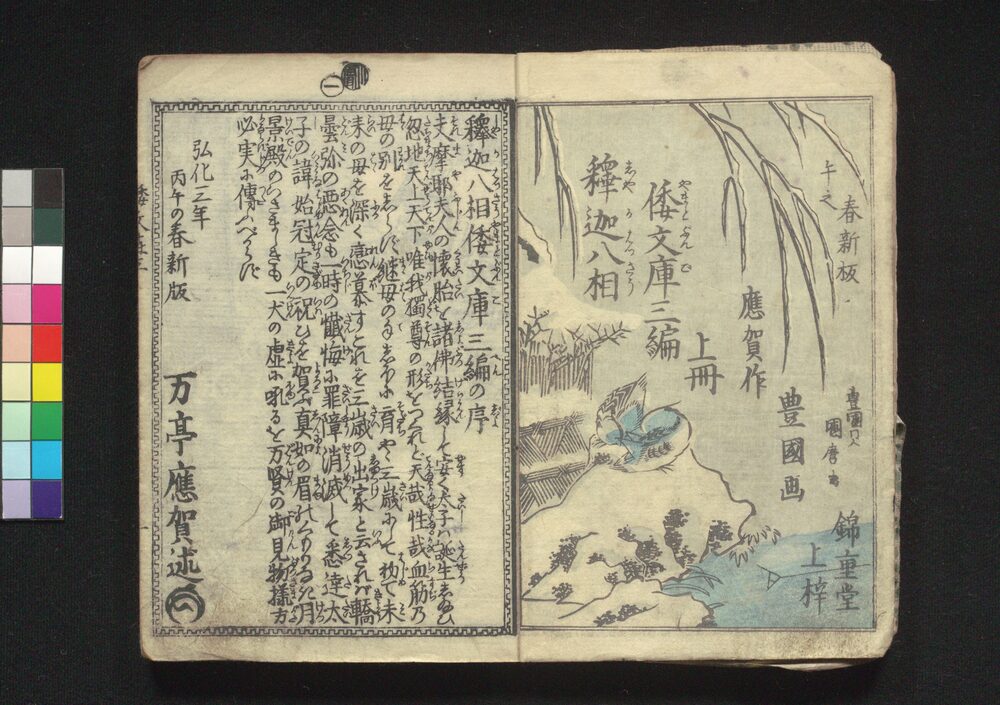 午之
春新板
應賀作
豊國画
豊國貞
國麿画
錦重堂
上梓
倭文庫三編
上冊
釋迦八相
釋迦八相倭文庫三編の序
夫摩耶夫人の懐胎を諸佛結縁して安く太子ハ誕生しゐひ
忽地天上天下唯我獨尊の形をつれど天哉性哉血筋乃
母の別をしらバ継母の手しほに育や三歳にして初て未
来の母を深く戀慕すこれを三歳の出家と云されバ轎
曇弥の悪念も一時の懺悔に罪障消滅して悉達太
子の諱始冠定の祝ひを賀ぶ真如の眉れ
月景殿の
一犬の虚に吼るを万賢の御見物様方
必実に傳
弘化三年
丙午の春新版
万亭應賀述
一